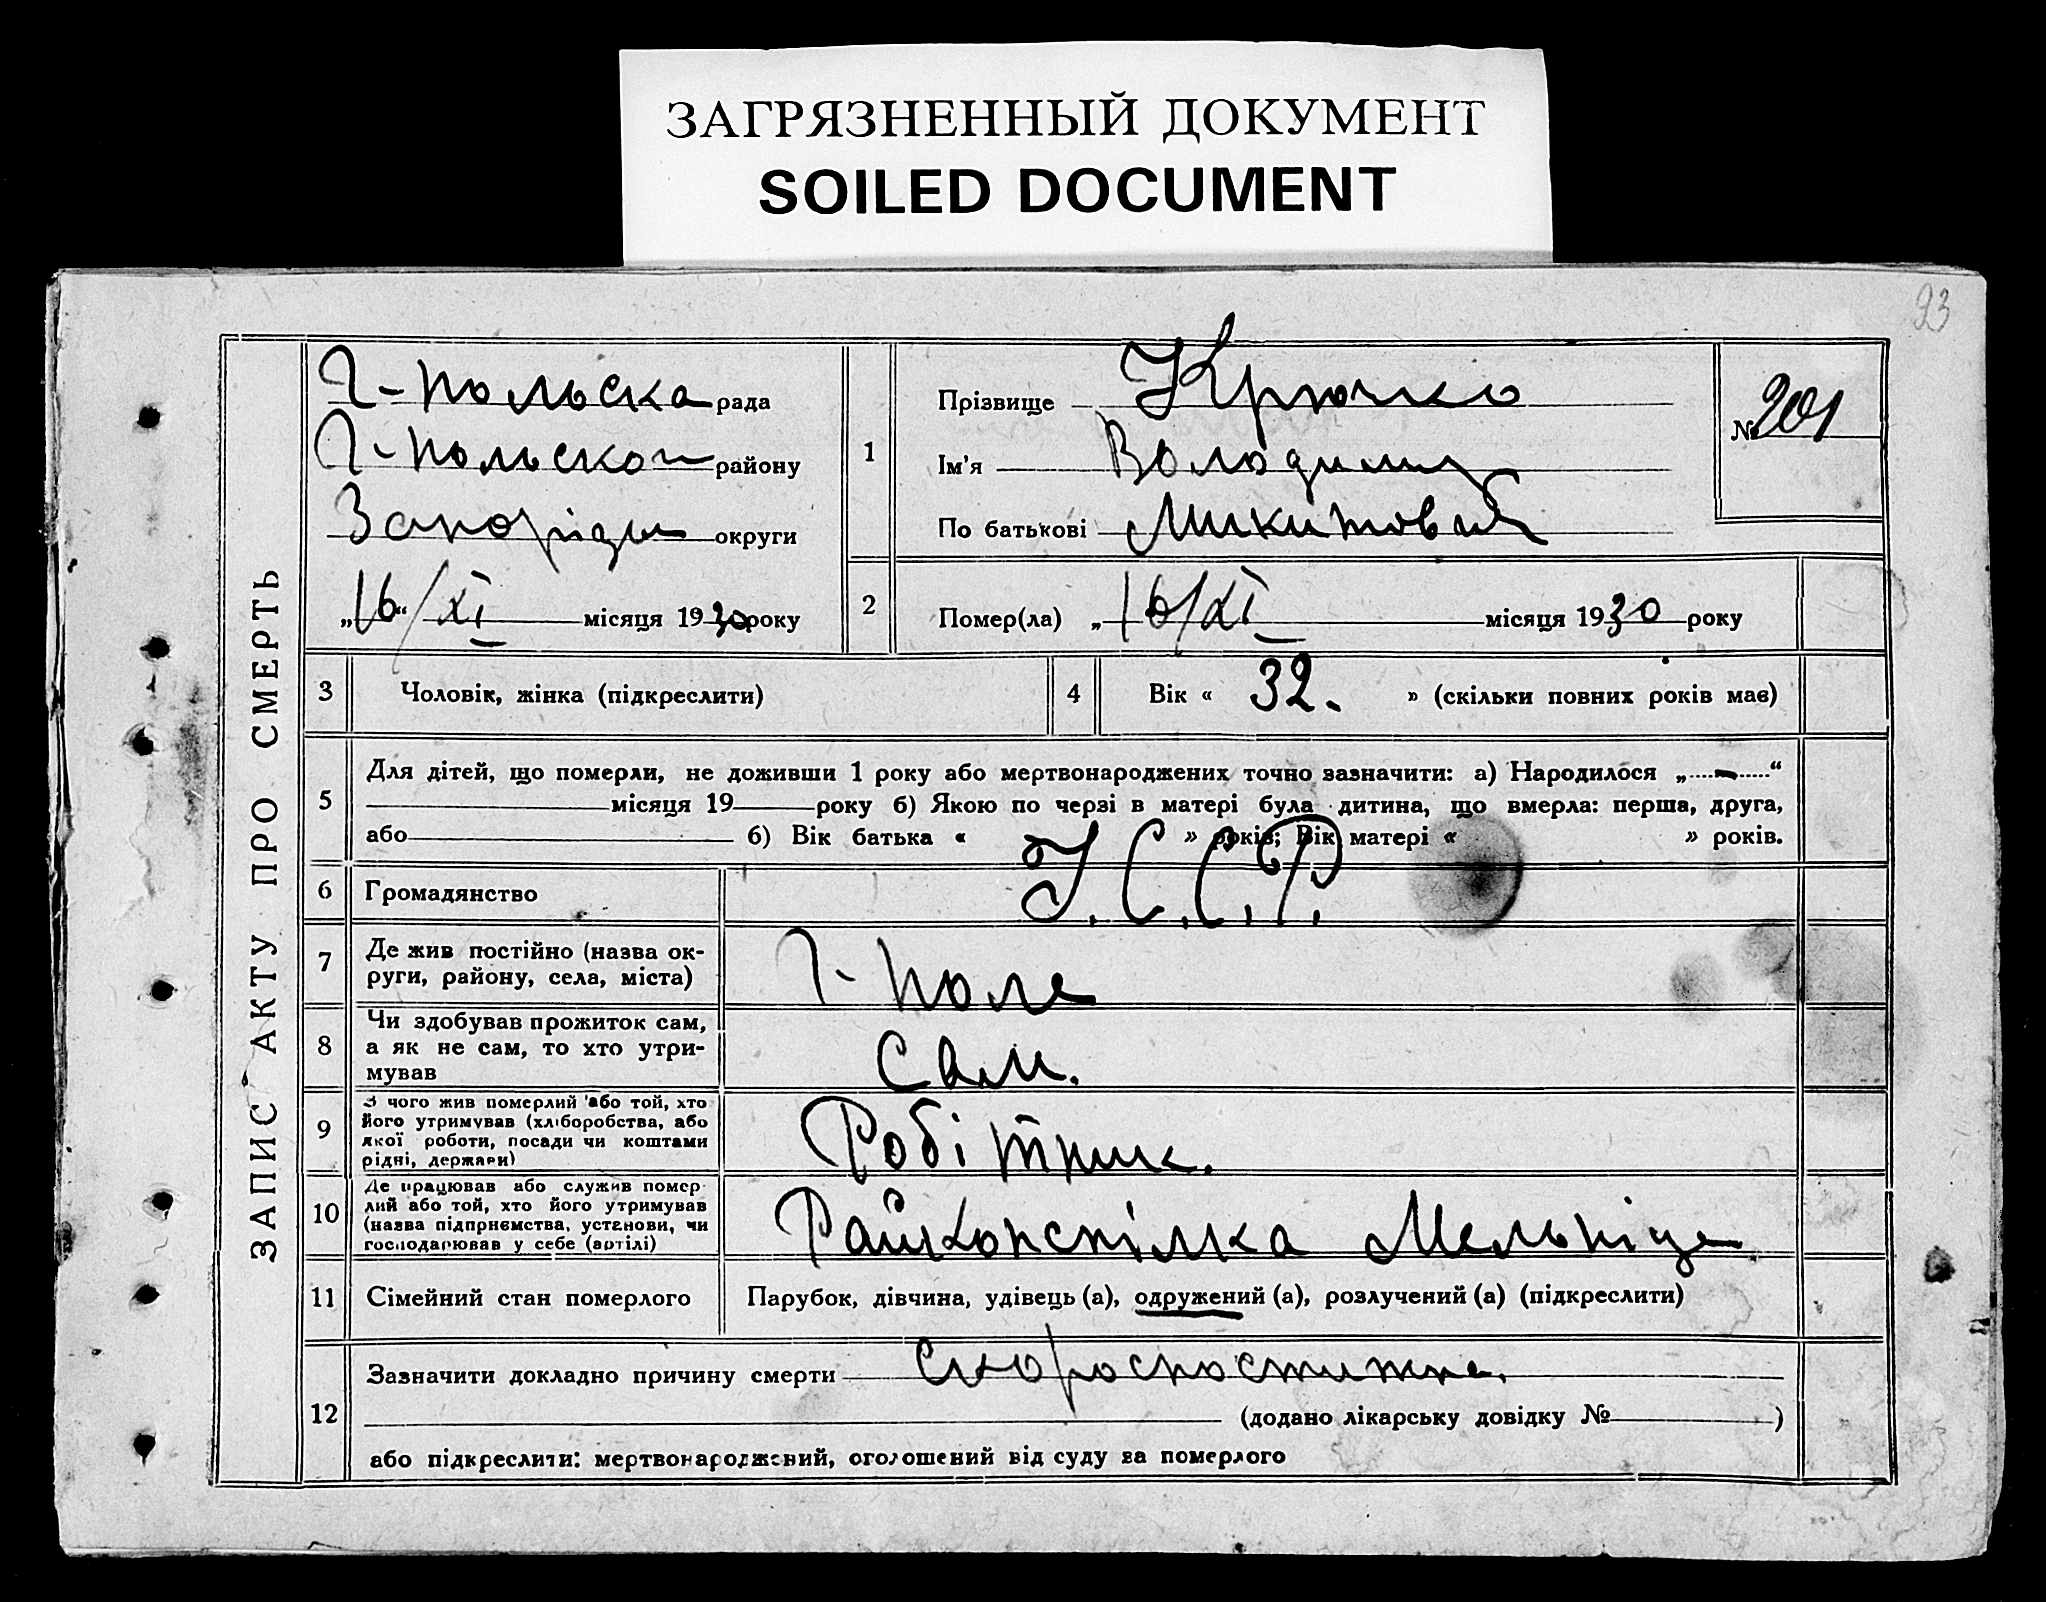 ЗАГРЯЗНЕННЫЙ ДОКУМЕНТ
SOILED DOCUMENT
23
ЗАПИС АКТУ ПРО СМЕРТЬ
Г-польска рада
Г-польског району
округи
„16“/XI місяця 1930 року
1
Прізвище Крючко
Ім'я Володимир
По батькові Микитович
№ 201
2
Помер(ла) „16/XI місяця 1930 року
3 Чоловік, жінка (підкреслити)
4 Вік « 32. » (скільки повних років має)
5
Для дітей, що померли, не доживши 1 року або мертвонароджених точно зазначити: а) Народилося „ — “
місяця 19 року б) Якою по черзі в матері була дитина, що вмерла: перша, друга,
або б) Вік батька « » років; Вік матері « » років.
6 Громадянство У.С.С.Р.
7
Де жив постійно (назва ок-
руги, району, села, міста)
Г-поле
8
Чи здобував прожиток сам,
а як не сам, то хто утри-
мував
Сам.
9
З чого жив померлий або той, хто
його утримував (хліборобства, або
якої роботи, посади чи коштами
рідні, держави)
Робітник.
10
Де працював або служив помер-
лий або той, хто його утримував
(назва підприємства, установи, чи
господарював у себе (артілі)
Райкопспілка
11 Сімейний стан померлого Парубок, дівчина, удівець (а), одружений (а), розлучений (а) (підкреслити)
12
Зазначити докладно причину смерти скоропостижна.
(додано лікарську довідку № )
або підкреслити: мертвонароджений, оголошений від суду за померлого